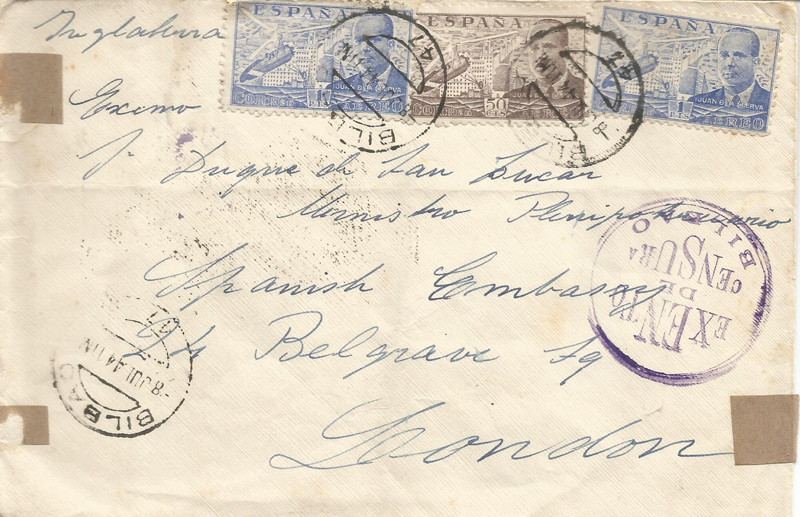 ESPAÑA
ESPAÑA
ESPAÑA
JUAN DE LA CIERVA
JUAN DE LA CIERVA
JUAN DE LA CIERVA
CORREO 1 PTS AEREO
CORREO 50 CTS AEREO
1 PTS AEREO
47
47
Inglaterra
Excmo
Sr Duque de San Lucar
Ministro Plenipotenciario
Spanish Embassy
24 Belgrave Sq
London
EXENTO
DE
CENSURA
BILBAO
BILBAO
-8 JUL 44